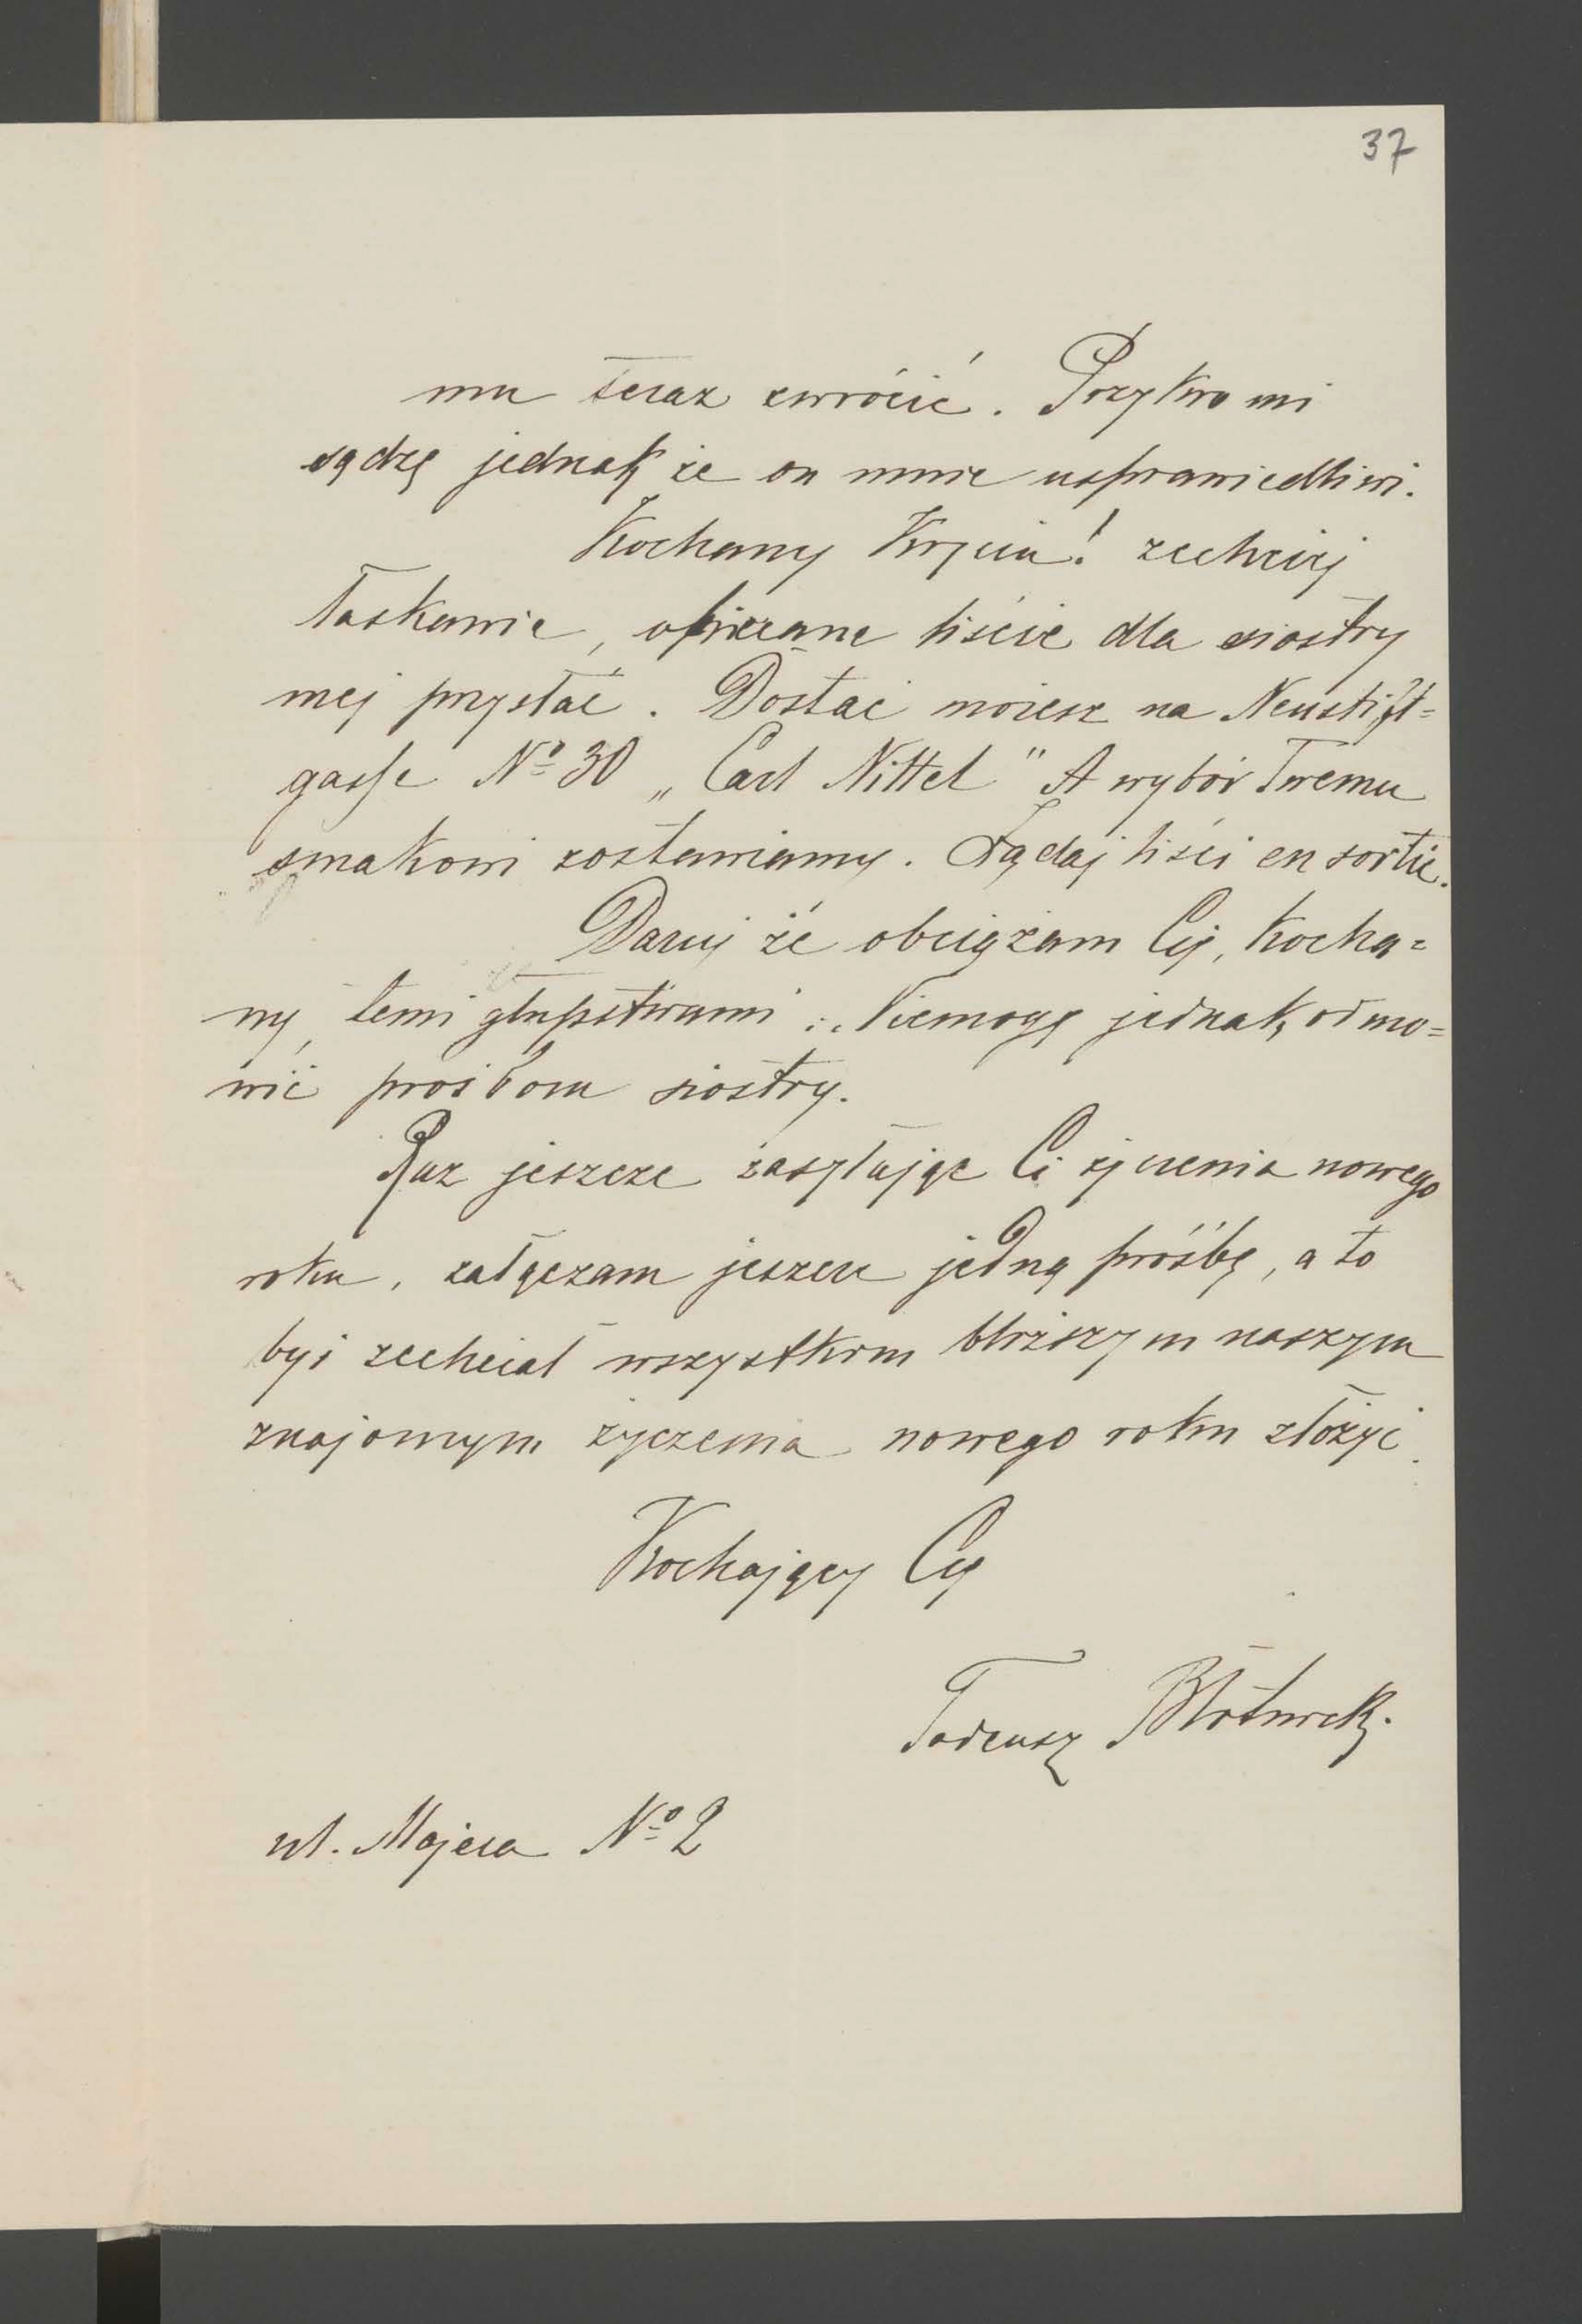 37
mu teraz zwrócić. Przykro mi
sądzę jednak że on mnie usprawiedliwi.
Kochany Kryciu! zechciej
łaskawie, opisane liście dla siostry
mej przysłać. Dostać możesz na Neustift=
gasse Nº 30 „Carl Nittel" A wybór Twemu
smakowi zostawiamy. Żądaj liści en sortie.
Daruj że obciążam Cię, Kocha=
ny, temi głupstwami. Niemogę jednak odmó=
wić prośbom siostry.
Raz jeszcze zasyłając Ci życzenia nowego
roku, załączam jeszcze jedną prośbę, a to
byś zechciał wszystkim bliższym naszym
znajomym życzenia nowego roku złożyć.
Kochający Cię
Tadeusz Błotnicki.
ul. Majera Nº 2